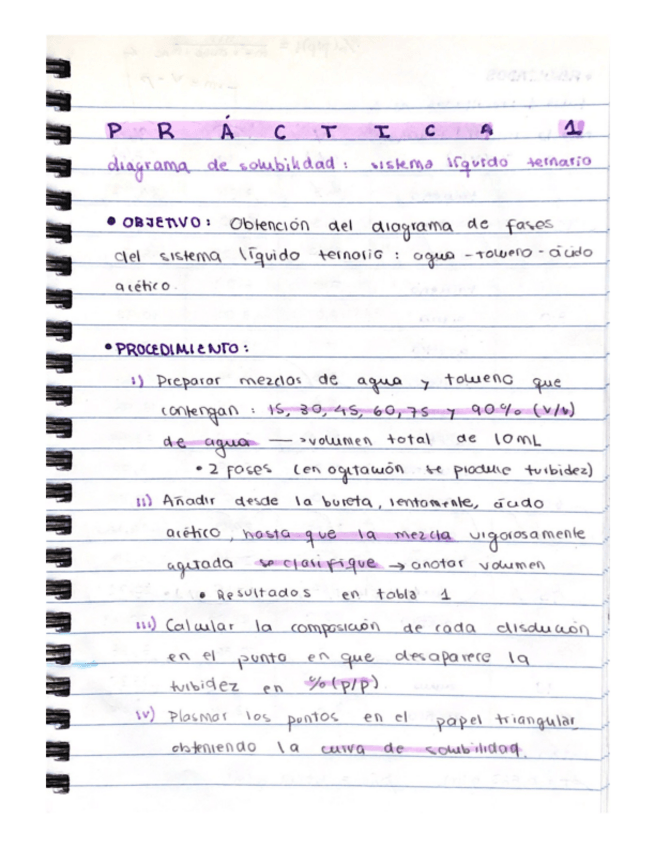 PRÁCTICA 1
diagrama de solubilidad: sistema líquido ternario
• OBJETIVO: Obtención del diagrama de fases
del sistema líquido ternario: agua - tolueno - ácido
acético.
• PROCEDIMIENTO:
i) Preparar mezclas de agua y tolueno que
contengan: 15, 30, 45, 60, 75 y 90% (v/v)
de agua —> volumen total de 10mL
• 2 fases (en agitación se produce turbidez)
ii) Añadir desde la bureta, lentamente, ácido
acético, hasta que la mezcla vigorosamente
agitada se clarifique → anotar volumen
• Resultados en tabla 1
iii) Calcular la composición de cada disolución
en el punto en que desaparece la
turbidez en % (p/p)
iv) Plasmar los puntos en el papel triangular
obteniendo la curva de solubilidad.